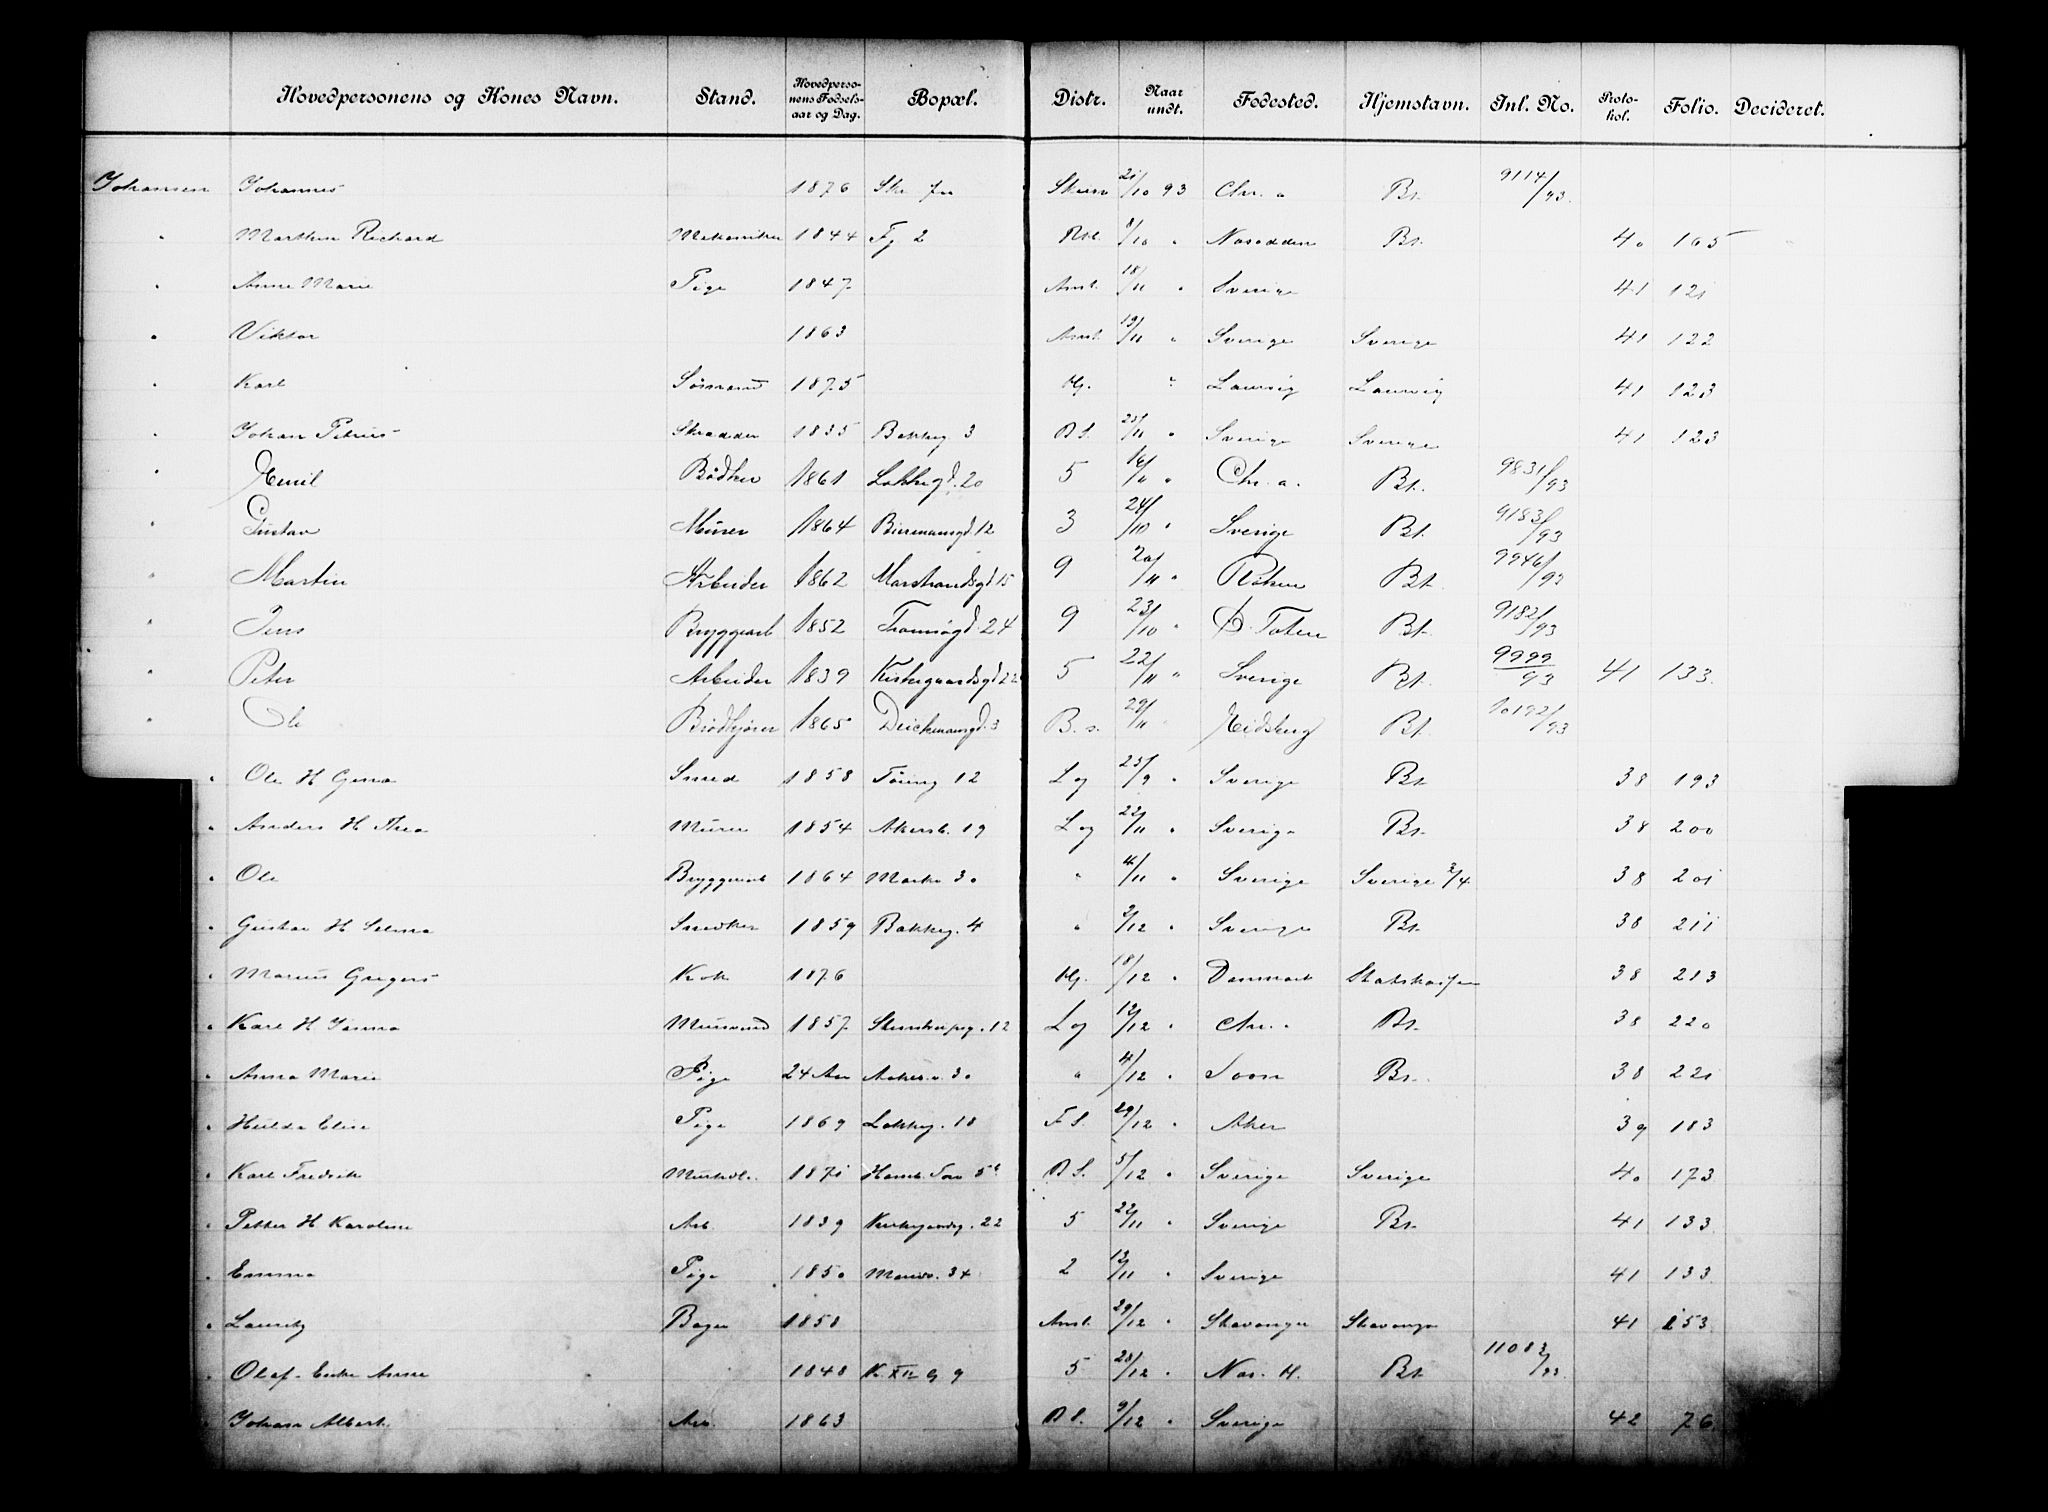 Hovedpersonens og Kones Navn. Stand. Hovedpersonens Fødselsaar og Dag. Bopæl. Distr. Naar undt. Fødested. Hjemstavn. Inl. No. Protokol. Folio. Decideret.
Johansen Johannes 1876 21/10 93 Chr.a Bt. 9114/93.
" Marthin Richard Mekaniker 1844 Fg 2 8/10 " Nesodden Bt. 40 165
" Anne Marie Pige 1847 18/11 " Sverige 41 121
" Viktor 1863 19/11 " Sverige Sverige 41 122
" Karl Sømand 1875 " Laurvig Laurvig 41 123
" Johan Petrus Skrædder 1835 Bakkeg 3 B S. 25/11 " Sverige Sverige 41 123
" Emil Bødker 1861 Løkkegd. 20 5 16/11 " Chr.a. Bt. 9831/93
" Gustav Murer 1864 Biermannsgd. 12 3 24/10 " Sverige Bt. 9183/93
" Martin Arbeider 1862 Marstrandsgd 15 9 20/11 " Røken Bt. 9946/93
" Jens Bryggearb 1852 Tromsøgd. 24 9 23/10 " Ø. Toten Bt. 9182/93
" Peter Arbeider 1839 Kirkegaardsgd 22 5 22/11 " Sverige Bt. 9999/93 41 133.
" Ole Brødkjører 1865 Deichmannsgd. 3 B. s. 29/11 Eidsberg Bt. 10192/93
" Ole H Gina Smed 1858 Tøieng 12 Log 25/9 " Sverige Bt. 38 193
" Anders H Thea Murer 1854 Akersb. 19 Log 22/11 " Sverige Bt. 38 200
" Ole Bryggearb 1864 Markv 30 " 4/11 " Sverige Sverige 2/4 38 201
" Gustav H Selma Snedker 1859 Bakkeg. 4 " 2/12 " Sverige Bt. 38 211
" Marius Gregers Kok 1876 Hj. 18/12 " Danmark Statskassen 38 213
" Karl H Janna Murersvend 1857 Stenstrupsg. 12 Log 12/12 " Chr.a Bt. 38 220
" Anna Marie Pige 24 Aar Akersv. 30 " 4/12 " Soon Bt. 38 221
" Hulda Elise Pige 1869 Løkkeg. 18 F S. 29/12 " Aker 39 183
" Karl Fredrik 1871 B S. 5/12 " Sverige Sverige 40 173
" Petter H Karoline Arb. 1839 Kirkegaardsg. 22 5 22/11 " Sverige Bt. 41 133
" Emma Pige 1850 Maridv. 34 2 12/11 " Sverige 41 133.
" Lauritz Bager 1858 29/12 " Stavanger Stavanger 41 153.
" Olaf - Enke Anne 1848 K. XII G 9 5 28/12 " Nes. H. Bt. 11083/93.
" Johan Albert. Arb. 1863 B S. 9/12 " Sverige 42 76.